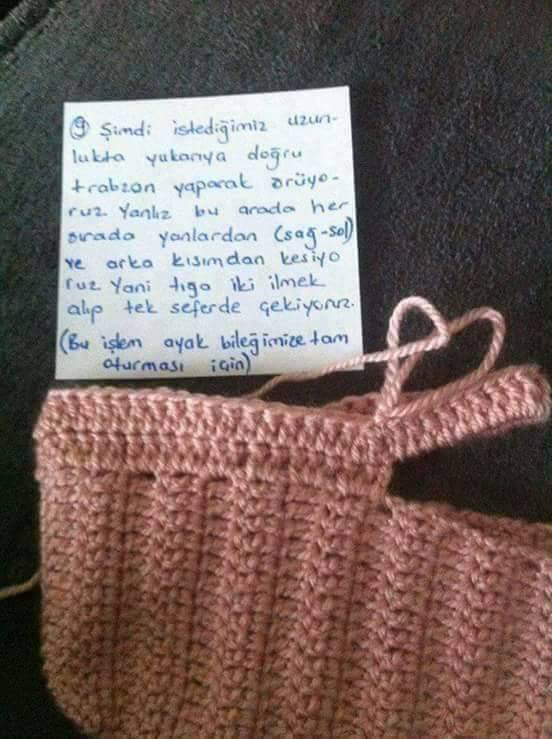 ⑨ Şimdi istediğimiz uzun-
lukta yukarıya doğru
trabzan yaparak örüyo-
ruz. Yanlız bu arada her
sırada yanlardan (sağ-sol)
ve arka kısımdan kesiyo
ruz Yani tığa iki ilmek
alıp tek seferde çekiyoruz.
(Bu işlem ayak bileğimize tam
oturması için)